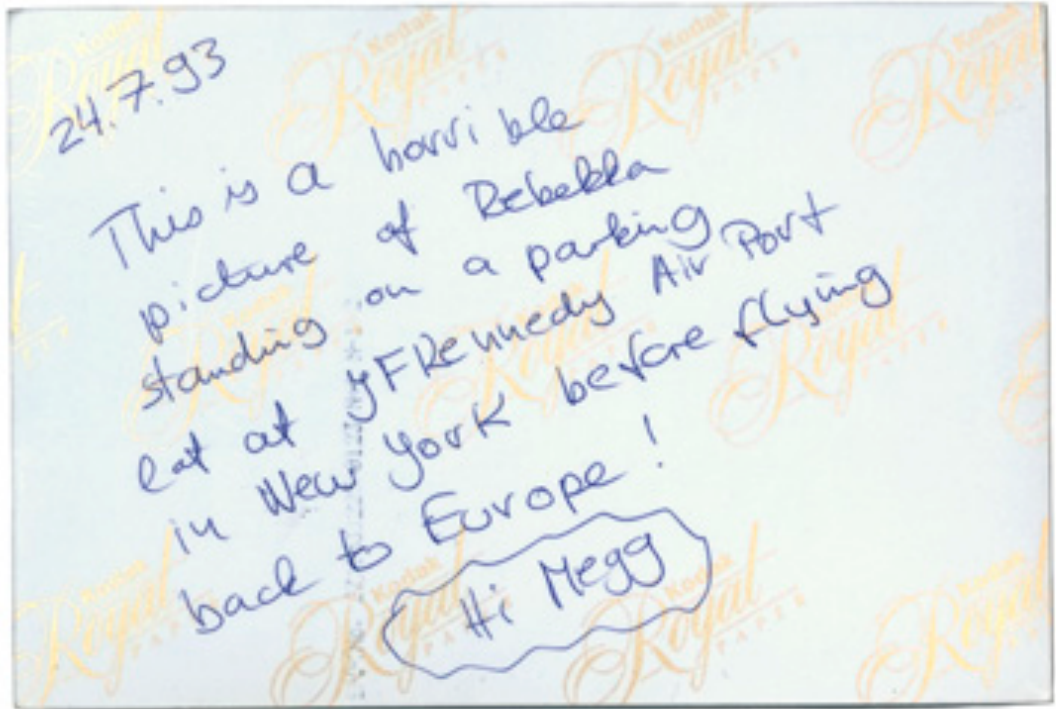 24.7.93
This is a horrible
picture of Rebekka
standing on a parking
lot at JFKennedy Air Port
in New York before flying
back to Europe!
Hi Megg
Kodak
Royal
PAPER